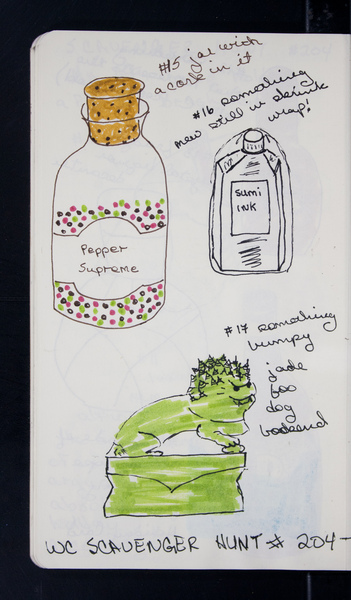 #15 jar with
a cork in it
#16 something
new still in shrink
wrap!
Pepper
Supreme
Sumi
INK
#17 something
bumpy
jade
foo
dog
bookend
WC SCAVENGER HUNT # 204-